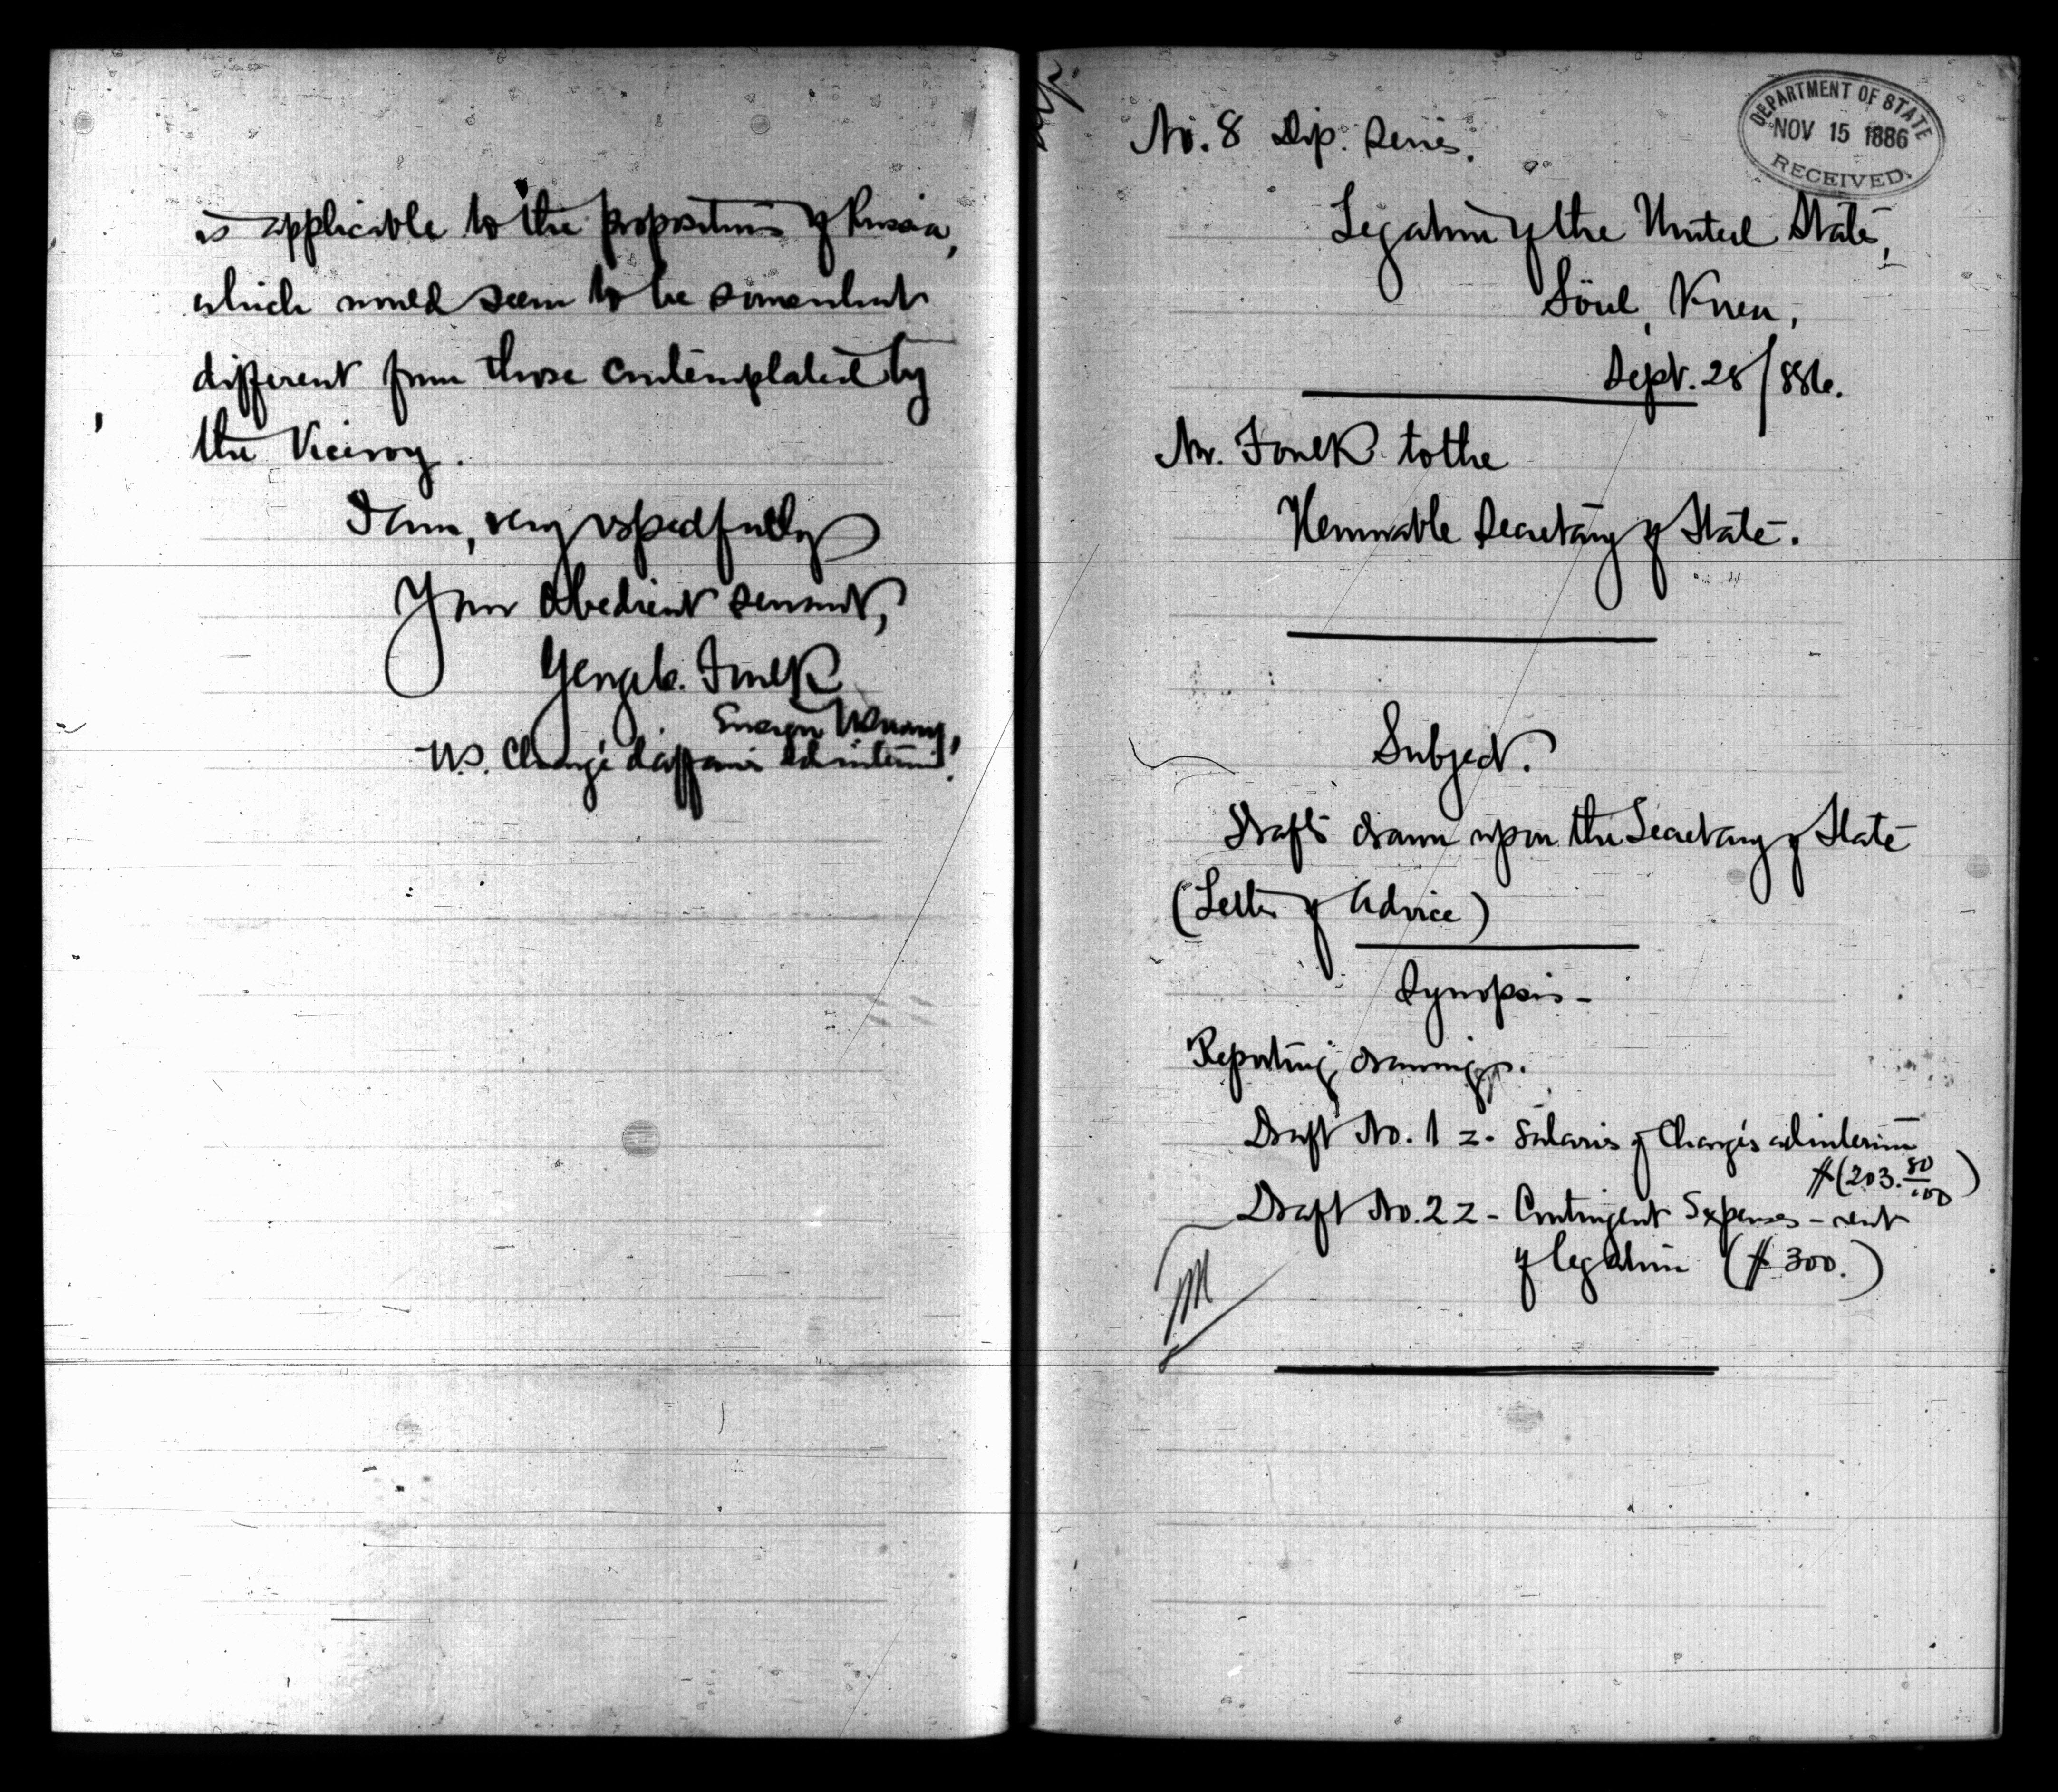 is applicable to the propositions of Russia,
which would seem to be somewhat
different from those contemplated by
the Viceroy.
I am, very respectfully
Your obedient servant,
George C. Foulk
Ensign U.S. Navy,
U.S. Chargé d'affaires ad interim.
No. 8 Dip. Series.
DEPARTMENT OF STATE
NOV 15 1886
RECEIVED.
Legation of the United States,
Söul, Korea,
Sept. 28/886.
Mr. Foulk to the
Honorable Secretary of State.
Subject.
Drafts drawn upon the Secretary of State
(Letter of Advice)
Synopsis-
Reporting drawings.
Draft No. 1 z- Salaries of Chargés ad interim
$(203. 80/100)
Draft No. 2 z- Contingent Expenses - rent
of legation ($300.)